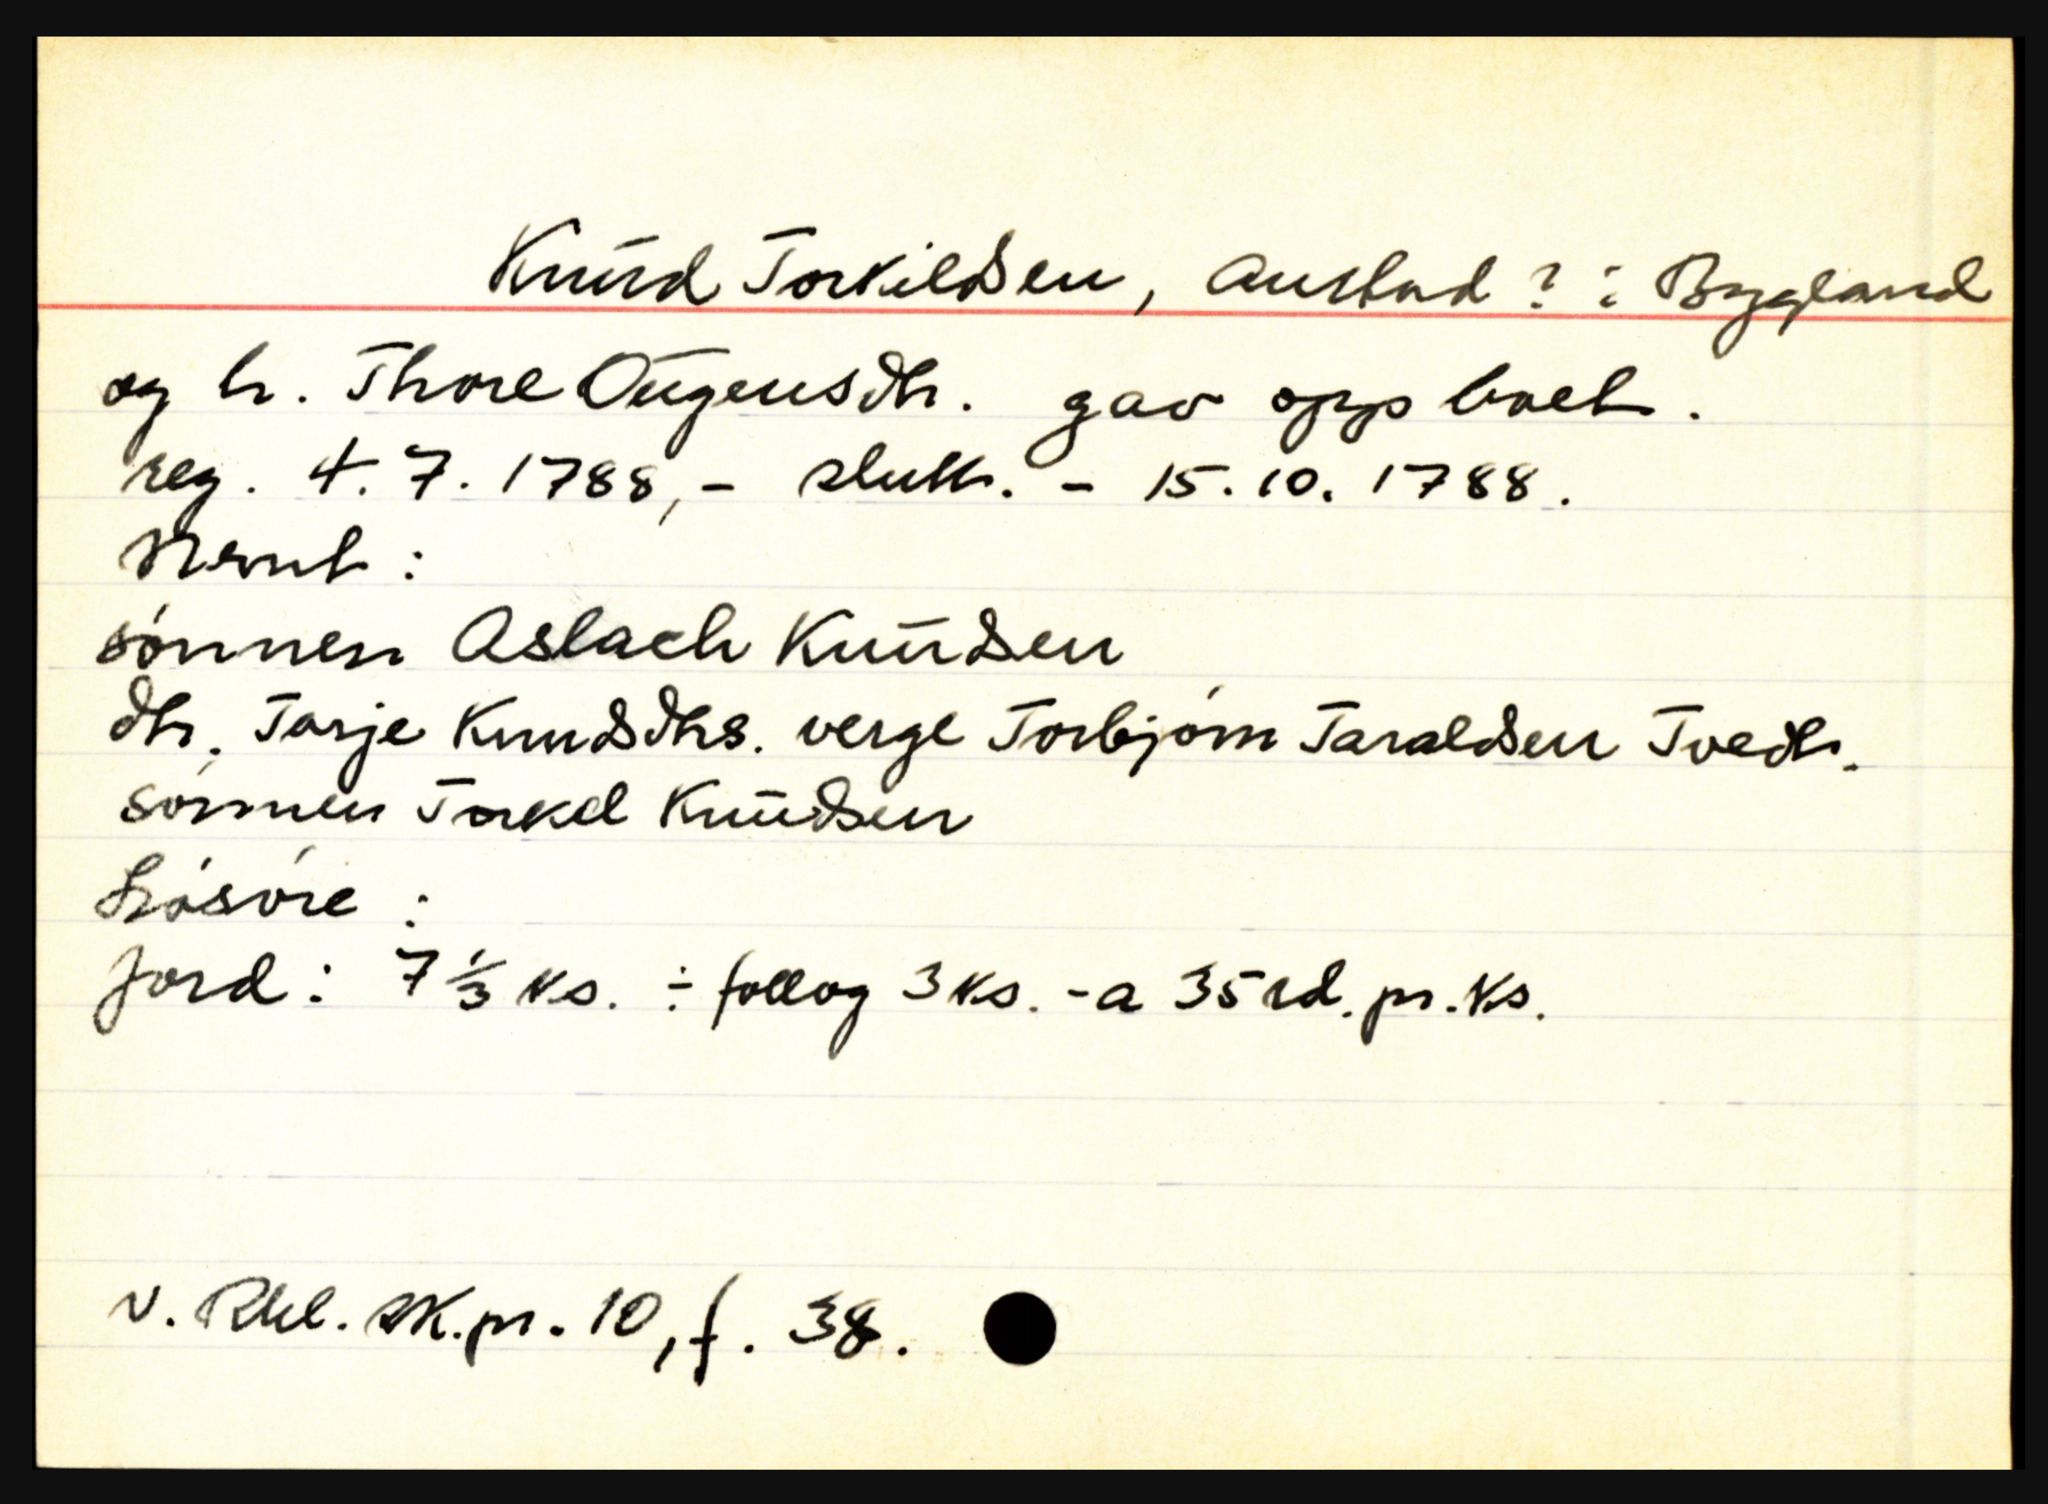 Knud Torkildsen, Austad ? i Bygland
og h. Thore Ougensdtr. gav opp boet.
reg. 4. 7. 1788, - slutt. - 15. 10. 1788.
Nevnt :
sønnen Aslach Knudsen
dtr. Tarje Knudsdtr. verge Torbjørn Taraldsen Tvedt.
sønnen Torkel Knudsen
Løsøre :
Jord : 7 1/3 ks. ÷ føllog 3 ks. - a 35 rd. pr. ks.
v. Rbl. sk.pr. 10, f. 38.